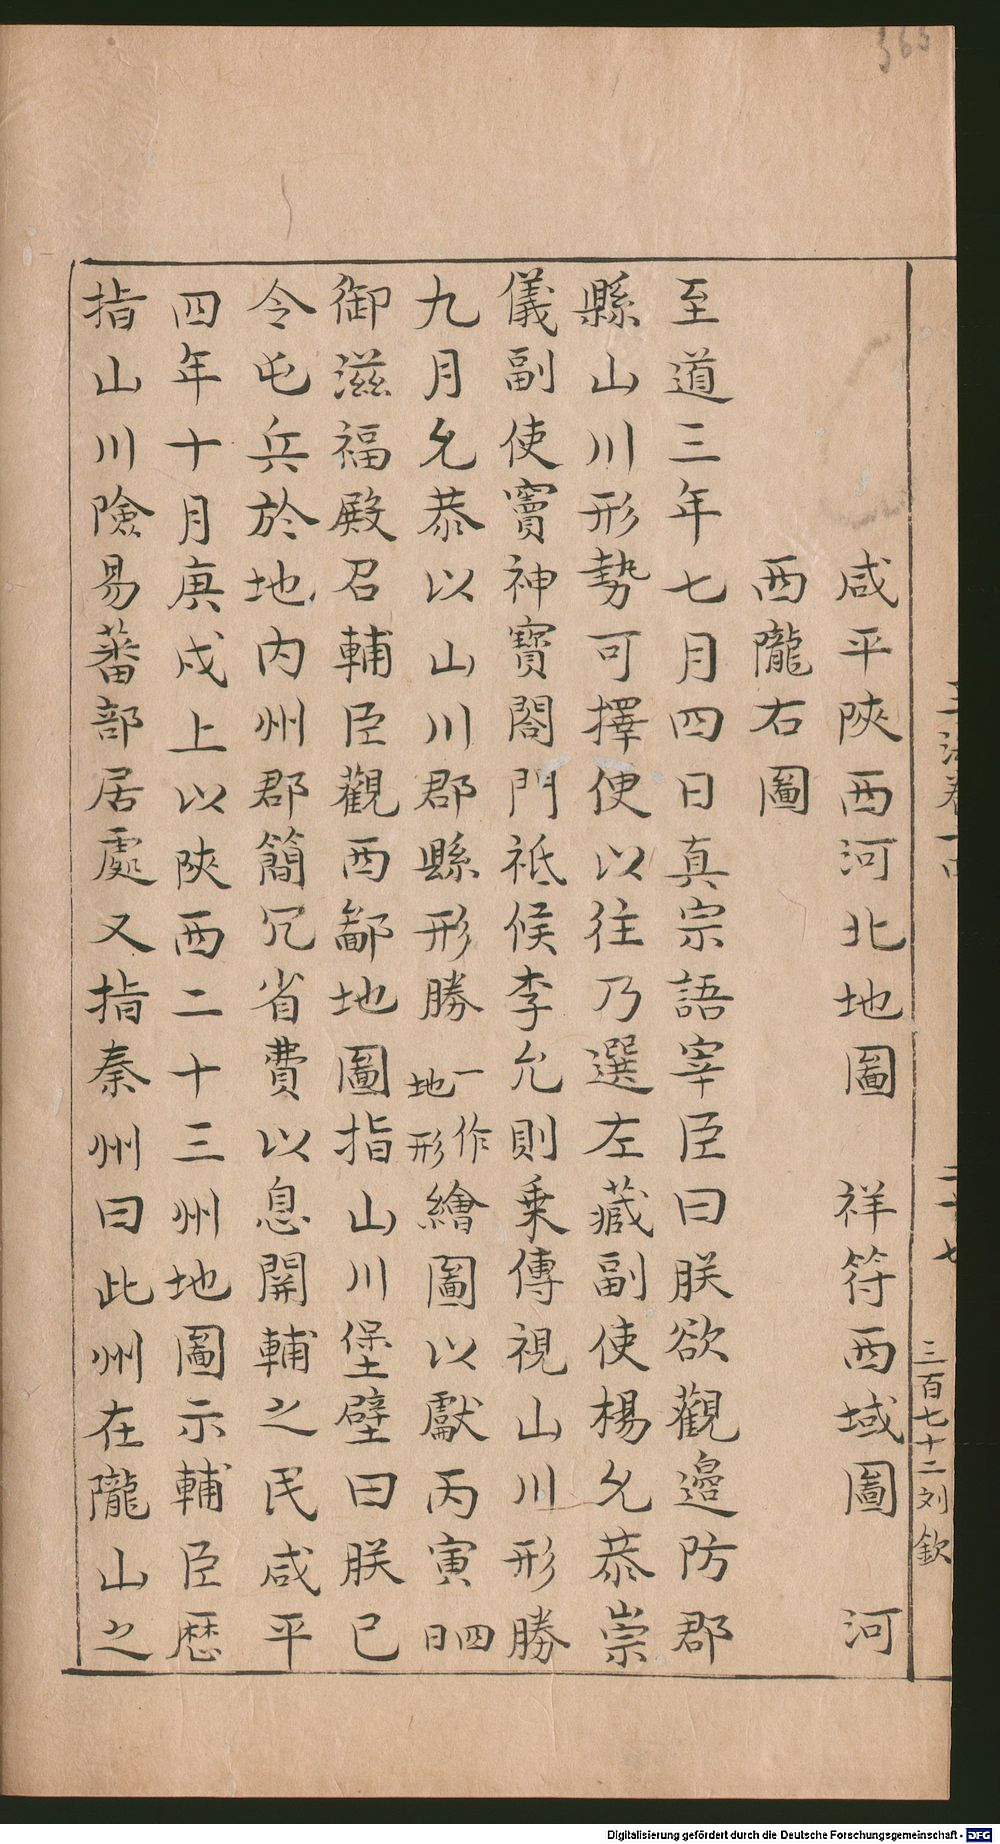 咸平陝西河北地圖　祥符西域圖　河
西隴右圖
至道三年七月四日真宗語宰臣曰朕欲觀邊防郡
縣山川形勢可擇使以往乃選左藏副使楊允恭崇
儀副使竇神寶閤門祗候李允則乗傳視山川形勝
九月允恭以山川郡縣形勝一作地形繪圖以獻丙寅四日
御滋福殿召輔臣觀西鄙地圖指山川堡壁曰朕已
令屯兵於地內州郡簡冗省費以息關輔之民咸平
四年十月庚戌上以陝西二十三州地圖示輔臣歷
指山川險易蕃部居處又指秦州曰此州在隴山之
三百七十二刘欽
Digitalisierung gefördert durch die Deutsche Forschungsgemeinschaft - DFG